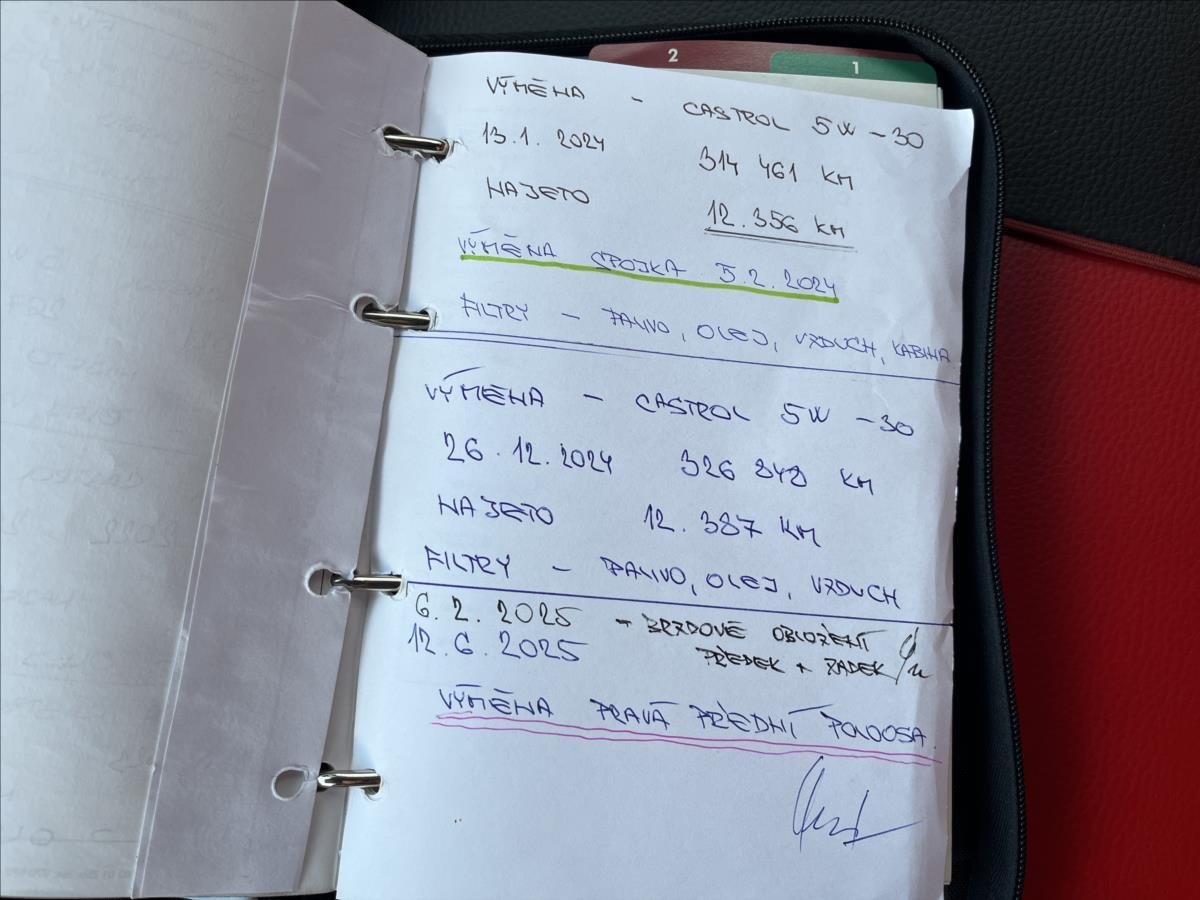 2
1
VÝMĚNA - CASTROL 5W-30
13.1. 2024 314 461 KM
NAJETO 12.356 KM
VÝMĚNA SPOJKA 5.2.2024
FILTRY - PALIVO, OLEJ, VZDUCH, KABINA
VÝMĚNA - CASTROL 5W-30
26.12.2024 326 848 KM
NAJETO 12.387 KM
FILTRY - PALIVO, OLEJ, VZDUCH
6.2.2025 - BRZDOVÉ OBLOŽENÍ
12.6.2025 PŘEDEK + ZADEK
VÝMĚNA PRAVÁ PŘEDNÍ POLOOSA